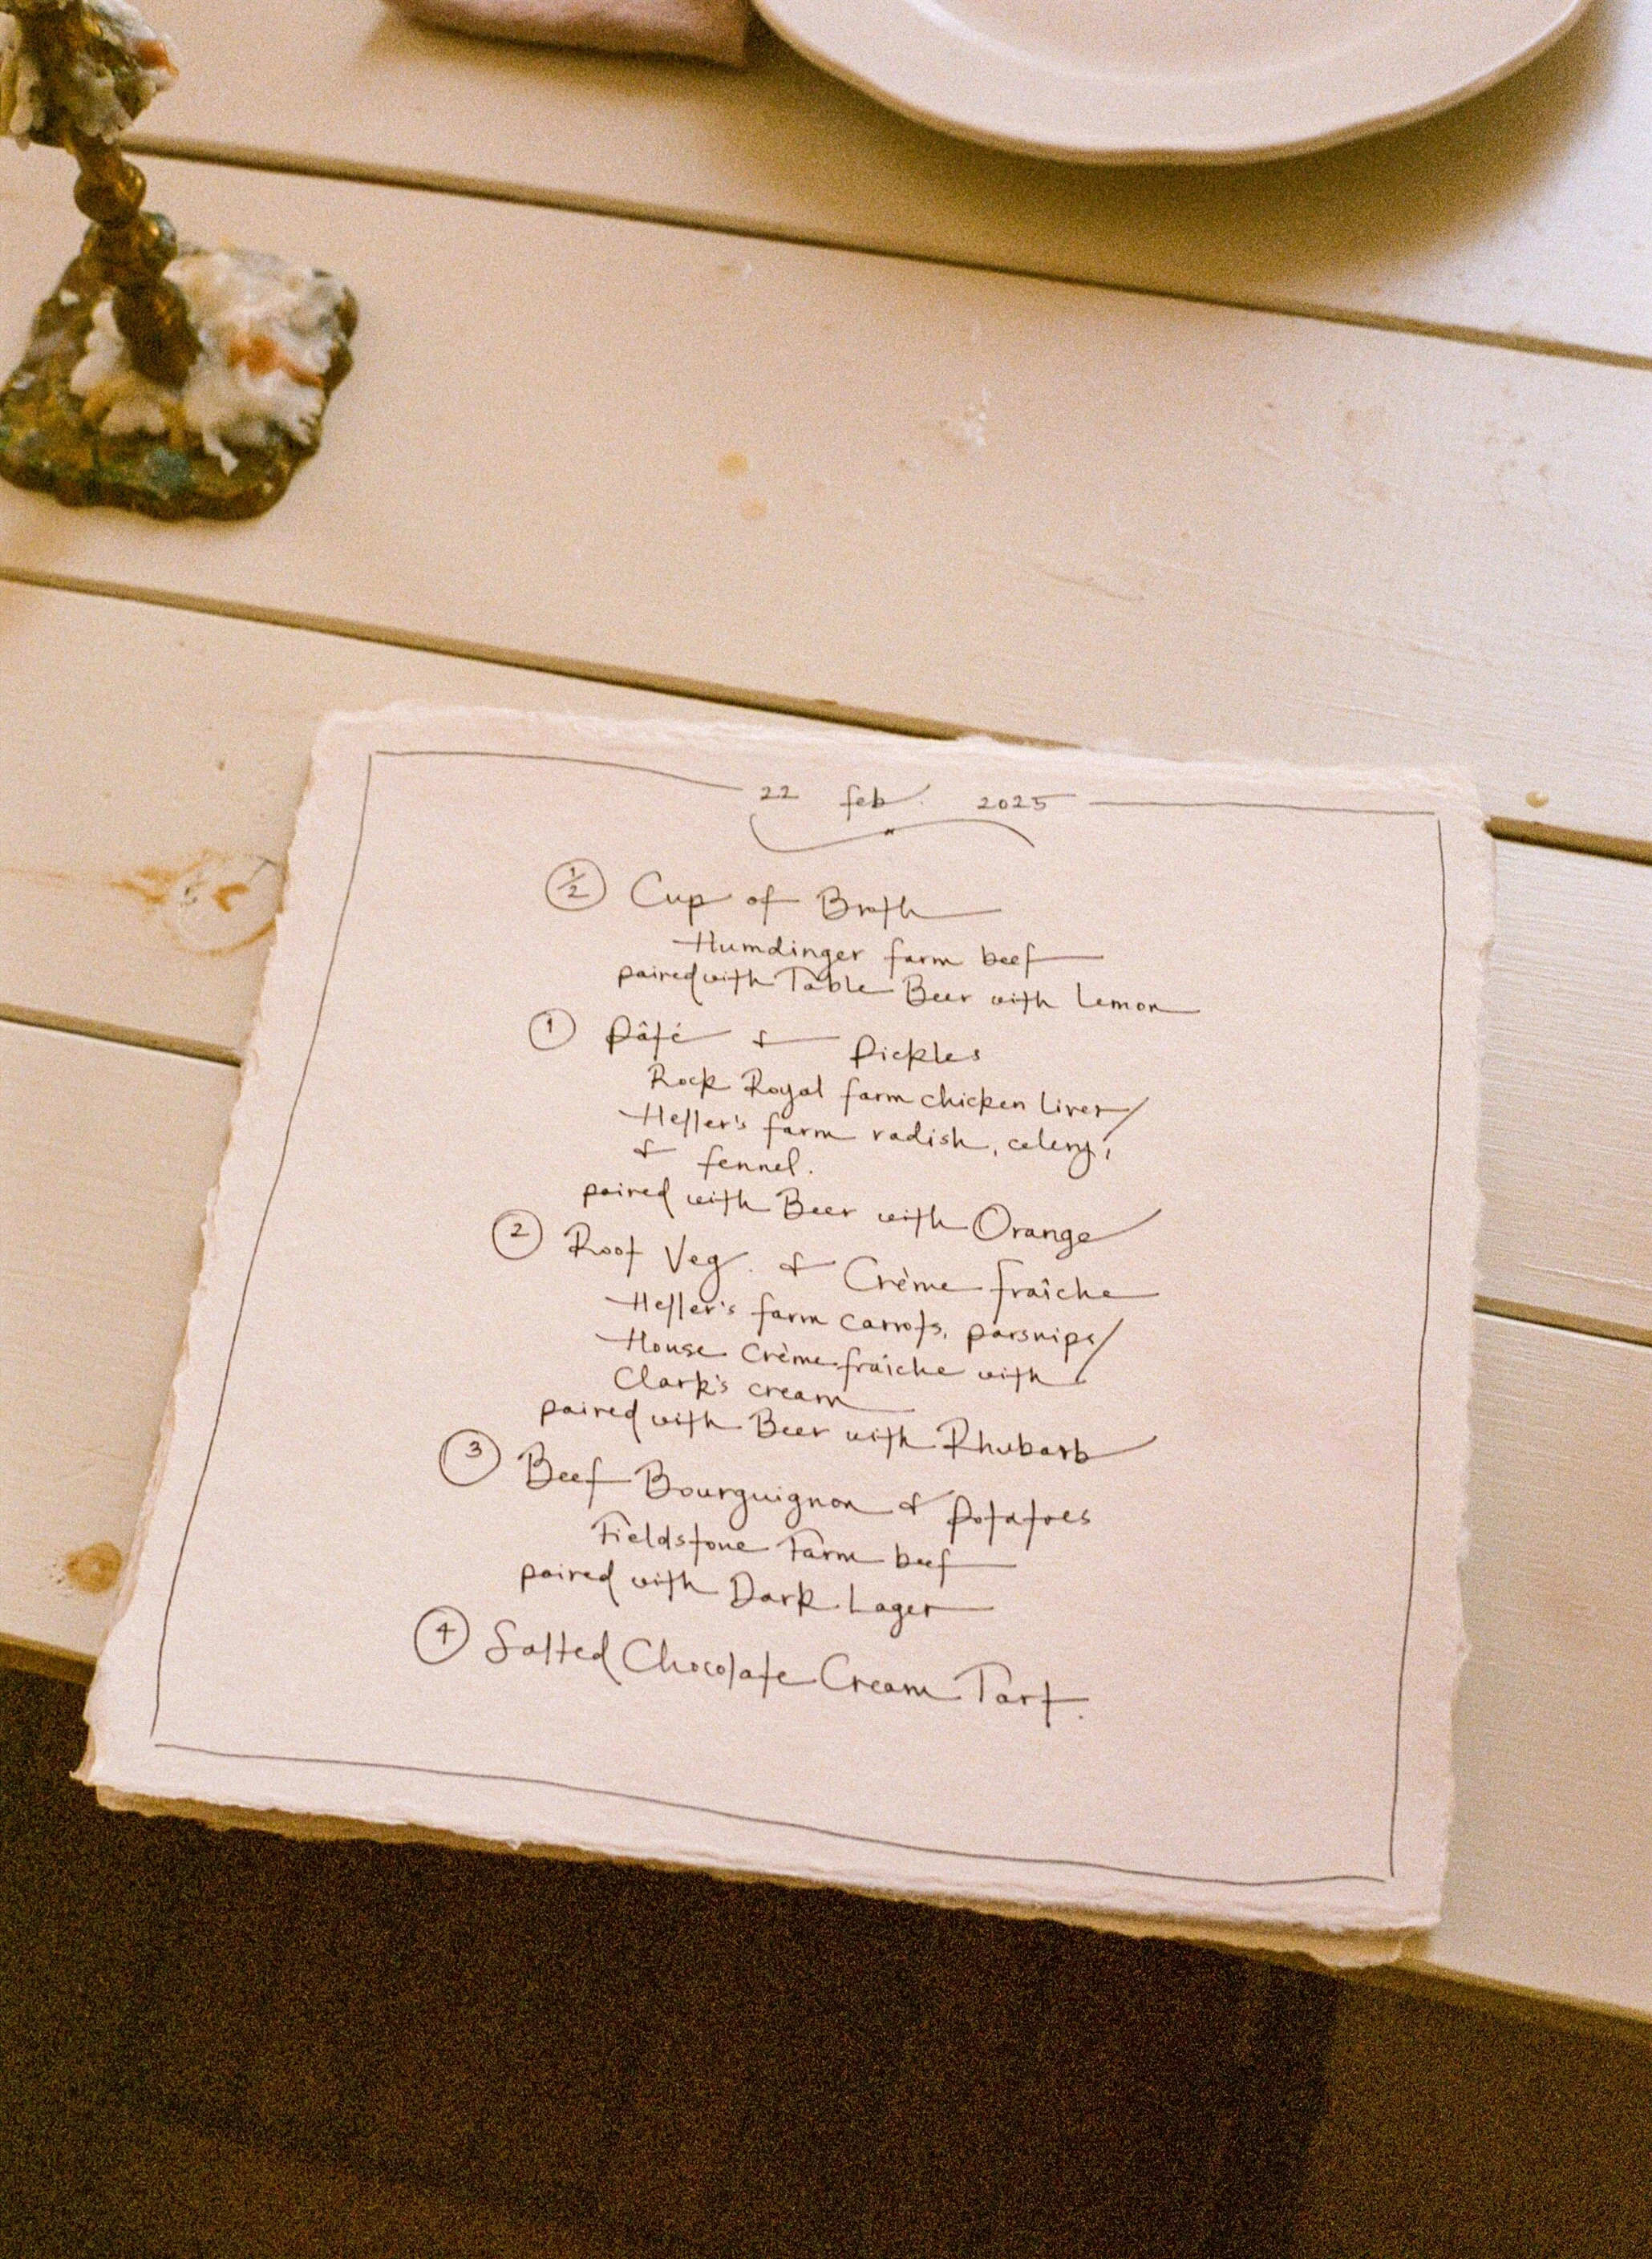 22 feb. 2025
1/2 Cup of Broth
Humdinger farm beef
paired with Table Beer with Lemon
1 Pâté & Pickles
Rock Royal farm chicken liver/
Heller's farm radish, celery,
& fennel.
paired with Beer with Orange
2 Root Veg. & Crème fraîche
Heller's farm carrots, parsnips/
House Crème fraîche with
Clark's cream
paired with Beer with Rhubarb
3 Beef Bourguignon & Potatoes
Fieldstone Farm beef
paired with Dark Lager
4 Salted Chocolate Cream Tart.